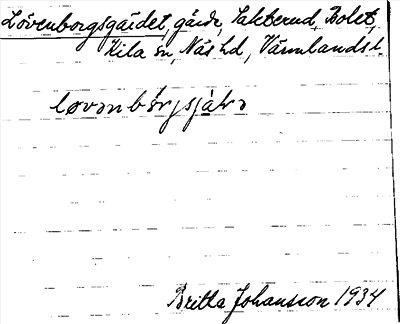 Lövenborgsgärdet, gärde, Takterud, Bolet,
Kila sn, Näs hd, Värmlands l.
løvənbòrjsjàḷə
Britta Johansson 1934